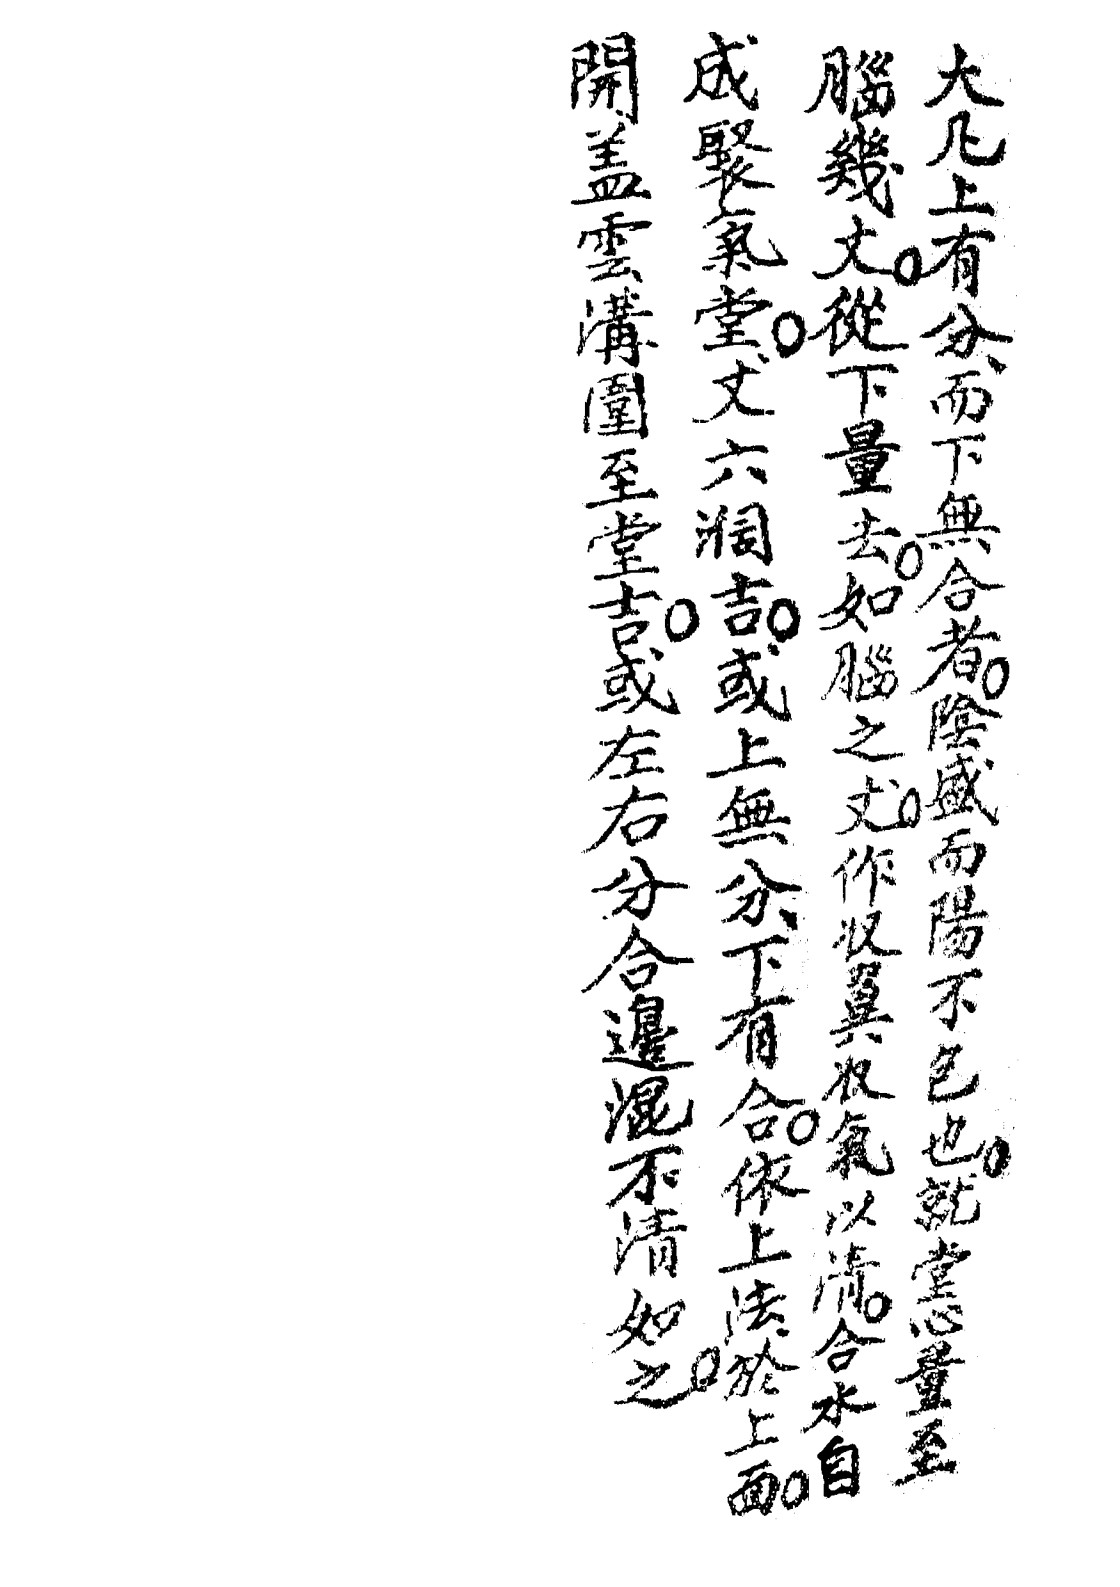 大凡上有分而下無合者。陰盛而陽不包也。就堂心量至
腦幾丈。從下量去。如腦之丈。作收翼收氣以清。合水自
成聚氣堂。丈六濶吉。或上無分下有合。依上法於上面。
開盖雲溝圍至堂吉。或左右分合邊混不清如之。